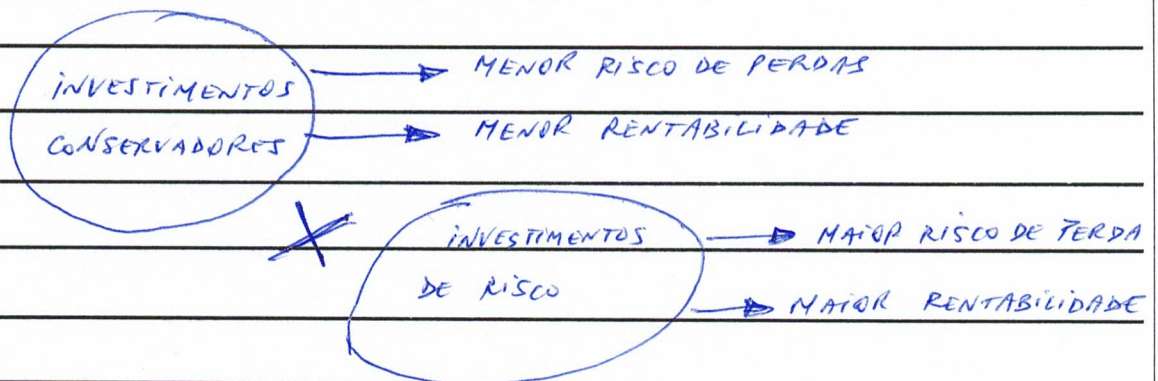 INVESTIMENTOS
CONSERVADORES
MENOR RISCO DE PERDAS
MENOR RENTABILIDADE
X
INVESTIMENTOS
DE RISCO
MAIOR RISCO DE PERDA
MAIOR RENTABILIDADE